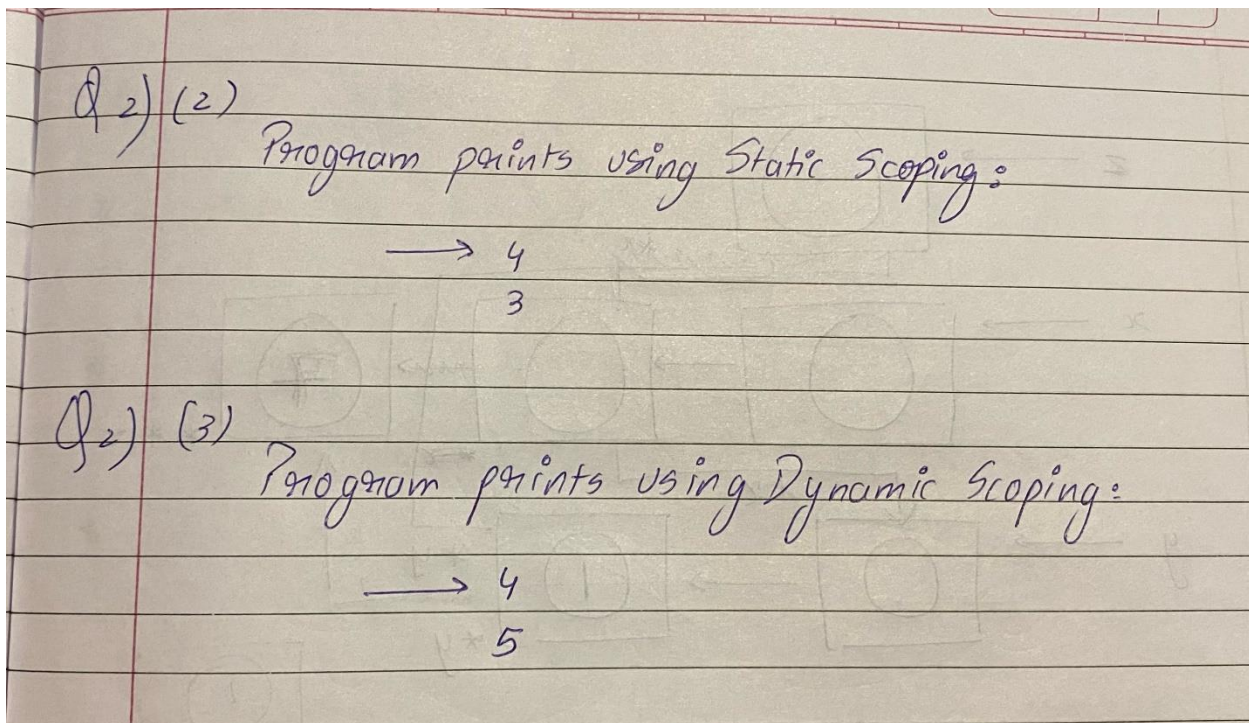 Q2) (2)
Program prints using Static Scoping:
→ 4
3
Q2) (3)
Program prints using Dynamic Scoping:
→ 4
5